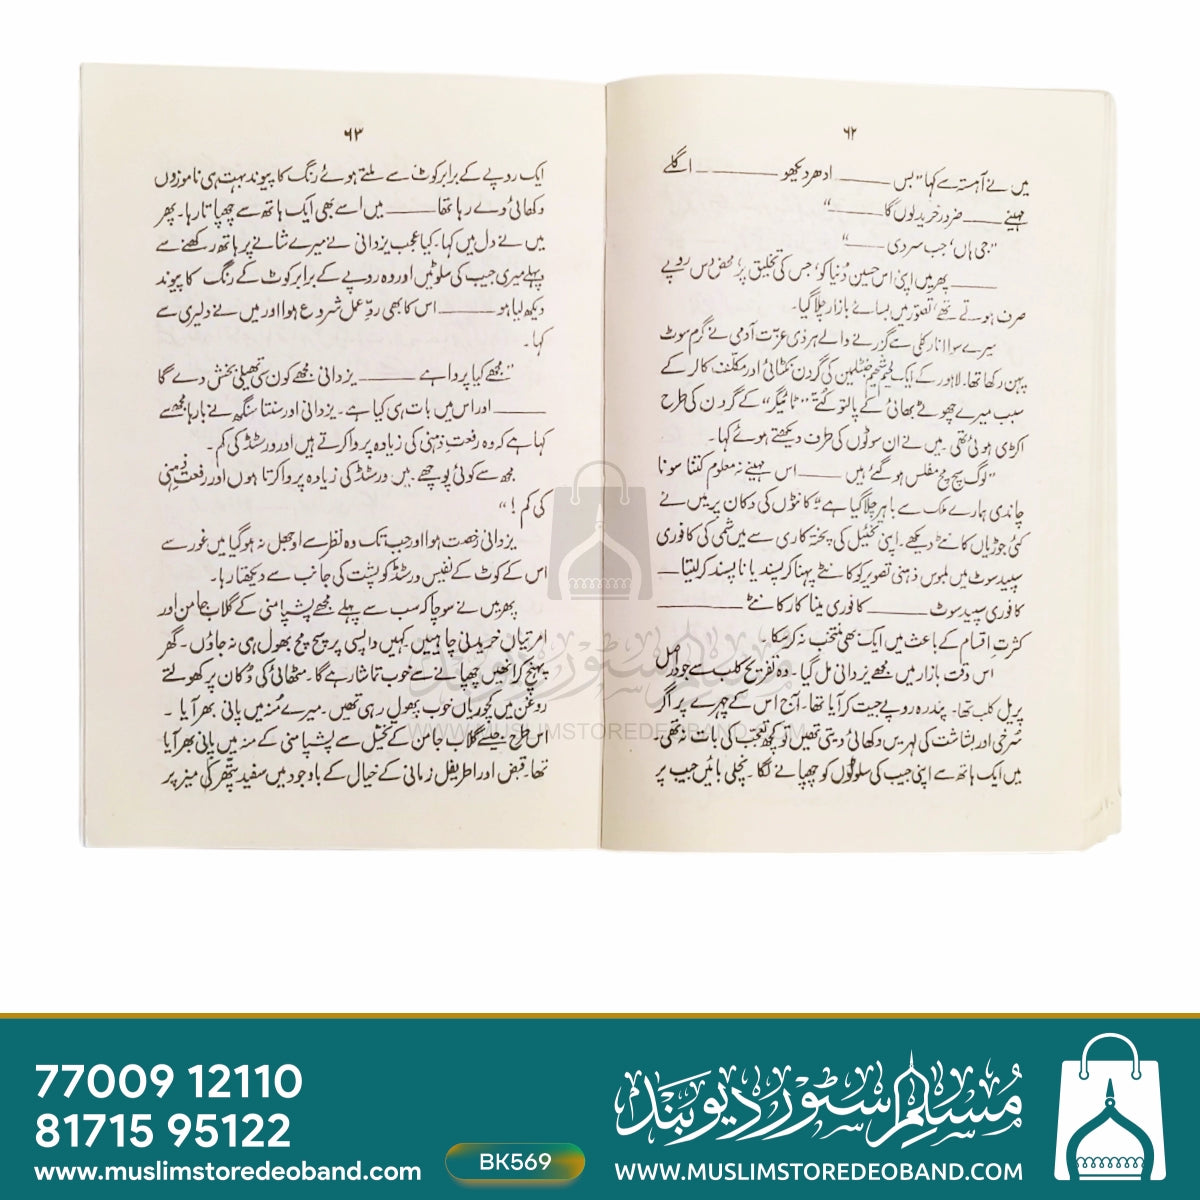 ۶۲
میں نے آہستہ سے کہا "بس ــــــ ادھر دیکھو ــــــ ــــــ اگلے
مہینے ــــــ ضرور خرید لوں گا ــــــ"
"جی ہاں، جب سردی ــــــ"
ــــــ پھر میں اپنی اس حسین دُنیا کو، جس کی تخلیق پر، محض دس روپے
صرف ہوئے تھے، تصوّر میں بسائے بازار چلا گیا۔
میرے سوا انارکلی سے گزرنے والے ہر ذی عزّت آدمی نے گرم سوٹ
پہن رکھا تھا۔ لاہور کے ایک لحیم شحیم جنٹلمین کی گردن نکٹائی اور مکلّف کالر کے
سبب میرے چھوٹے بھائی کے پالتو کتّے "ٹائیگر" کے گردن کی طرح
اکڑی ہوئی تھی۔ میں نے ان سوٹوں کی طرف دیکھتے ہوئے کہا۔
"لوگ سچ مچ مفلس ہو گئے ہیں ــــــ اس مہینے نہ معلوم کتنا سونا
چاندی ہمارے ملک سے باہر چلا گیا ہے" کانٹوں کی دکان پر میں نے
کئی جوڑیاں کانٹے دیکھے۔ اپنی تخئیل کی پختہ کاری سے میں شمی کی کافوری
سپید سوٹ میں ملبوس ذہنی تصویر کو کانٹے پہنا کر پسند یا ناپسند کر لیتا ــــــ
کافوری سپید سوٹ ــــــ کافوری مینا کار کانٹے ــــــ
کثرتِ اقسام کے باعث میں ایک بھی منتخب نہ کر سکا۔
اس وقت بازار میں مجھے یزدانی مل گیا۔ وہ تفریح کلب سے جو دراصل
پریل کلب تھا۔ پندرہ روپے جیت کر آیا تھا۔ آج اس کے چہرے پر اگر
سُرخی اور بشاشت کی لہریں دکھائی دیتی تھیں تو کچھ تعجب کی بات نہ تھی۔
میں ایک ہاتھ سے اپنی جیب کی سلوٹوں کو چھپانے لگا۔ نچلی بائیں جیب پر
۶۳
ایک روپے کے برابر کوٹ سے ملتے ہوئے رنگ کا پیوند بہت ہی ناموزوں
دکھائی دے رہا تھا ــــــ میں اسے بھی ایک ہاتھ سے چھپاتا رہا۔ پھر
میں نے دل میں کہا۔ کیا عجب یزدانی نے میرے شانے پر ہاتھ رکھنے سے
پہلے میری جیب کی سلوٹیں اور وہ روپے کے برابر کوٹ کے رنگ کا پیوند
دیکھ لیا ہو ــــــ اس کا بھی ردِّ عمل شروع ہوا اور میں نے دلیری سے
کہا۔
"مجھے کیا پروا ہے ــــــ یزدانی مجھے کون سی تھیلی بخش دے گا
ــــــ اور اس میں بات ہی کیا ہے۔ یزدانی اور سنتا سنگھ نے بارہا مجھ سے
کہا ہے کہ وہ رفعتِ ذہنی کی زیادہ پروا کرتے ہیں اور ورسٹڈ کی کم۔
مجھ سے کوئی پوچھے۔ میں ورسٹڈ کی زیادہ پروا کرتا ہوں اور رفعتِ ذہنی
کی کم!"
یزدانی رخصت ہوا اور جب تک وہ نظر سے اوجھل نہ ہو گیا میں غور سے
اس کے کوٹ کے نفیس ورسٹڈ کو پشت کی جانب سے دیکھتا رہا۔
پھر میں نے سوچا کہ سب سے پہلے مجھے پشپا منی کے گلاب جامن اور
امرتیاں خریدنی چاہییں۔ کہیں واپسی پر سچ مچ بھول ہی نہ جاؤں۔ گھر
پہنچ کر انھیں چھپانے سے خوب تماشا رہے گا۔ مٹھائی کی دُکان پر کھولتے
روغن میں کچوریاں خوب پھول رہی تھیں۔ میرے مُنہ میں پانی بھر آیا۔
اس طرح جیسے گلاب جامن کے تخئیل سے پشپا منی کے منہ میں پانی بھر آیا
تھا۔ قبض اور اطریفل زمانی کے خیال کے باوجود میں سفید پتھر کی میز پر
مسلم سٹور دیوبند
WWW.MUSLIMSTOREDEOBAND.COM
77009 12110
81715 95122
www.muslimstoredeoband.com
BK569
مُسلم سٹور دیوبند
WWW.MUSLIMSTOREDEOBAND.COM